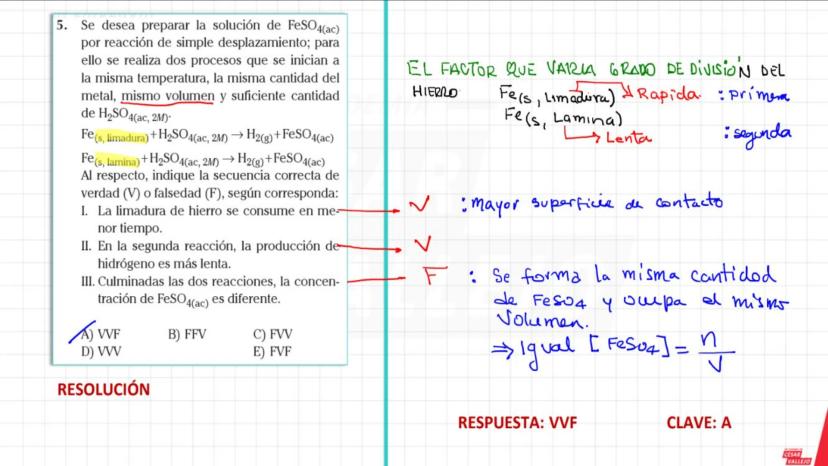 5. Se desea preparar la solución de FeSO4(ac)
por reacción de simple desplazamiento; para
ello se realiza dos procesos que se inician a
la misma temperatura, la misma cantidad del
metal, mismo volumen y suficiente cantidad
de H2SO4(ac, 2M).
Fe(s, limadura)+H2SO4(ac, 2M) → H2(g)+FeSO4(ac)
Fe(s, lamina)+H2SO4(ac, 2M) → H2(g)+FeSO4(ac)
Al respecto, indique la secuencia correcta de
verdad (V) o falsedad (F), según corresponda:
I. La limadura de hierro se consume en me-
nor tiempo.
II. En la segunda reacción, la producción de
hidrógeno es más lenta.
III. Culminadas las dos reacciones, la concen-
tración de FeSO4(ac) es diferente.
A) VVF B) FFV C) FVV
D) VVV E) FVF
RESOLUCIÓN
EL FACTOR QUE VARIA GRADO DE DIVISIÓN DEL
HIERRO Fe(s, Limadura) → Rapida : primera
Fe(s, Lamina)
→ Lenta : segunda
V : mayor superficie de contacto
V
F : Se forma la misma cantidad
de FeSO4 y ocupa el mismo
volumen.
⇒ Igual [FeSO4] = n/V
RESPUESTA: VVF CLAVE: A
CÉSAR
VALLEJO